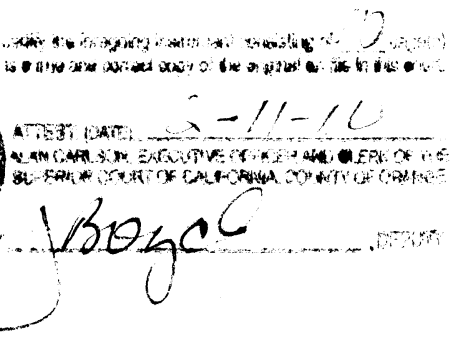 certify the foregoing instrument consisting of page(s)
is a true and correct copy of the original on file in this court.
ATTEST: (DATE) -11-10
ALAN CARLSON, EXECUTIVE OFFICER AND CLERK OF THE
SUPERIOR COURT OF CALIFORNIA, COUNTY OF ORANGE
JBoyce , DEPUTY